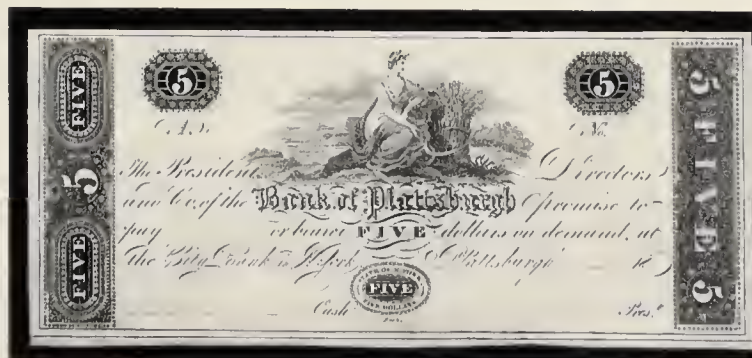 FIVE 5 FIVE
5 5
No. No.
The President Directors
and Co. of the Bank of Plattsburgh promise to
pay or bearer FIVE dollars on demand, at
the City Bank N. York Plattsburgh 18
FIVE
FIVE DOLLARS
Cash. Pres.
5 FIVE 5